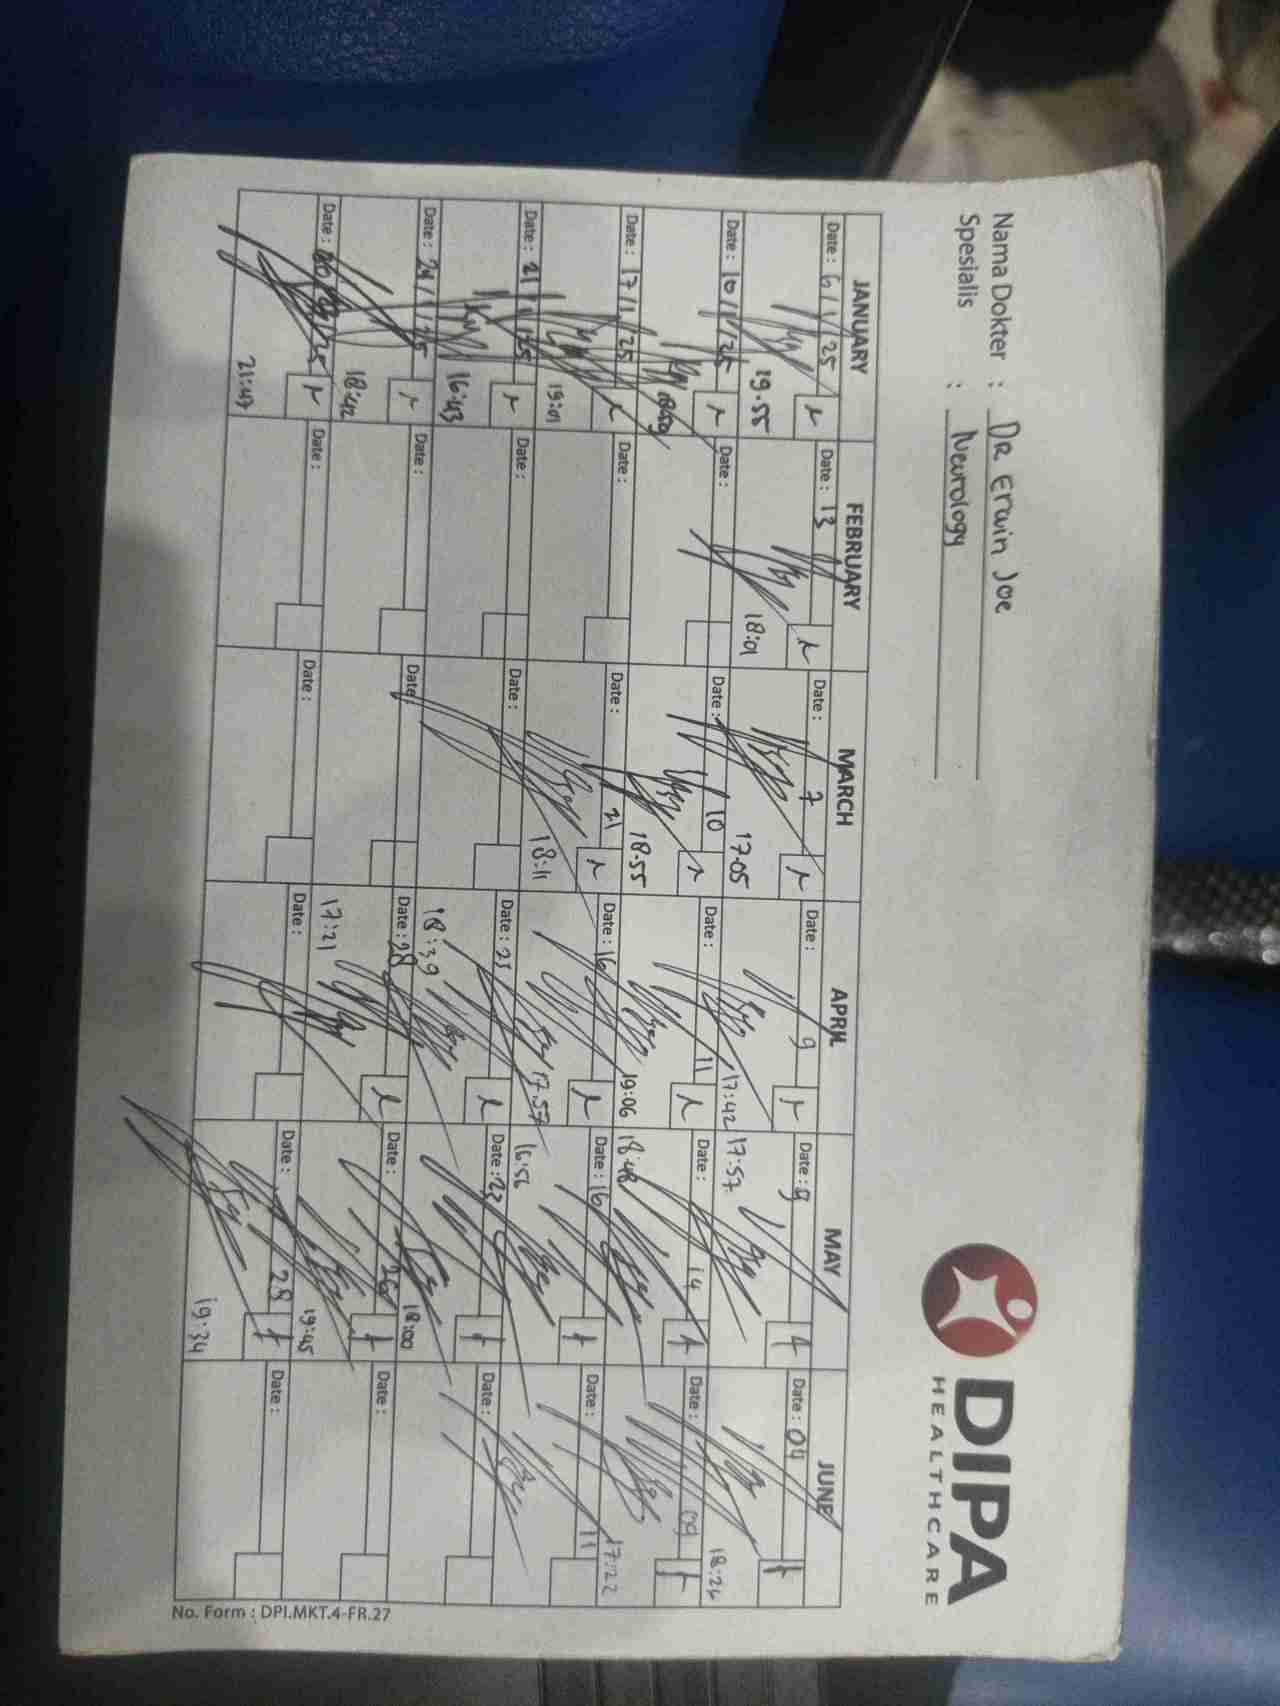 Nama Dokter : DR Erwin Joe
Spesialis : Neurology
DIPA
HEALTHCARE
JANUARY FEBRUARY MARCH APRIL MAY JUNE
Date : 6/1/25 Date : 13 Date : 7 Date : 9 Date : 9 Date : 04
19.55 18:01 17.05 17:42 17:57 18:26
Date : 10/1/25 Date : Date : 10 Date : 11 Date : 14 Date : 09
18.55 19:06 18:48 17:22
Date : 17/1/25 Date : Date : 21 Date : 16 Date : 16 Date : 11
19:01 18:11 17.57 16:56
Date : 21/1/25 Date : Date : Date : 23 Date : 23 Date :
16:43 18:39 18:00
Date : 24/1/25 Date : Date : Date : 28 Date : 26 Date :
18:42 17:21 19:45
Date : Date : Date : Date : Date : 28 Date :
21:47 19:34
No. Form : DPI.MKT.4-FR.27